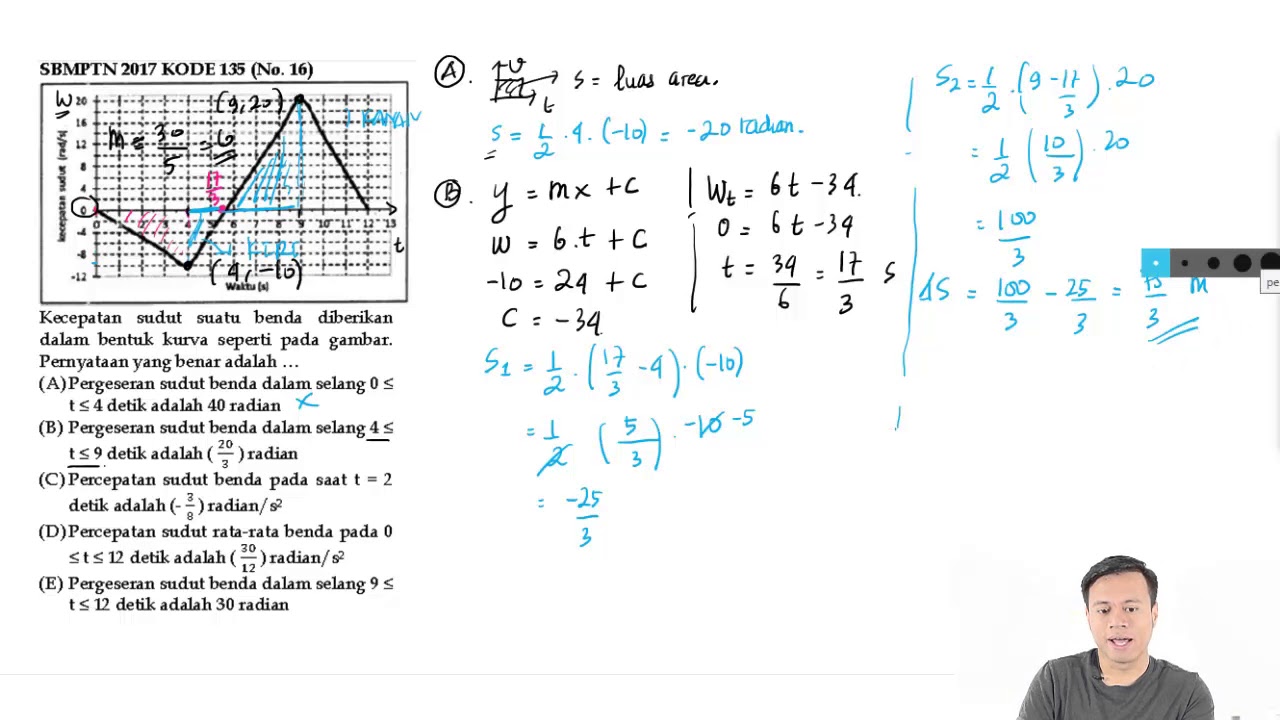 SBMPTN 2017 KODE 135 (No. 16)
W
20
16
12
8
4
0
-4
-8
-12
kecepatan sudut (rad/s)
(9, 20)
m = 30/5 = 6
17/3
KANAN
KIRI
(4, -10)
0 4 5 6 7 8 9 10 11 12 13
t
Waktu (s)
Kecepatan sudut suatu benda diberikan
dalam bentuk kurva seperti pada gambar.
Pernyataan yang benar adalah …
(A) Pergeseran sudut benda dalam selang 0 ≤
t ≤ 4 detik adalah 40 radian x
(B) Pergeseran sudut benda dalam selang 4 ≤
t ≤ 9 detik adalah (20/3) radian
(C) Percepatan sudut benda pada saat t = 2
detik adalah (-3/8) radian/s²
(D) Percepatan sudut rata-rata benda pada 0
≤ t ≤ 12 detik adalah (30/12) radian/s²
(E) Pergeseran sudut benda dalam selang 9 ≤
t ≤ 12 detik adalah 30 radian
(A). v t s = luas area.
s = 1/2 . 4 . (-10) = -20 radian.
(B). y = mx + c
w = 6.t + c
-10 = 24 + c
c = -34
Wt = 6t - 34.
0 = 6t - 34
t = 34/6 = 17/3 s
S1 = 1/2 . (17/3 - 4) . (-10)
= 1/2 (5/3) . -10 -5
= -25/3
S2 = 1/2 . (9 - 17/3) . 20
= 1/2 (10/3) . 20
= 100/3
ΔS = 100/3 - 25/3 = 75/3 m
pe